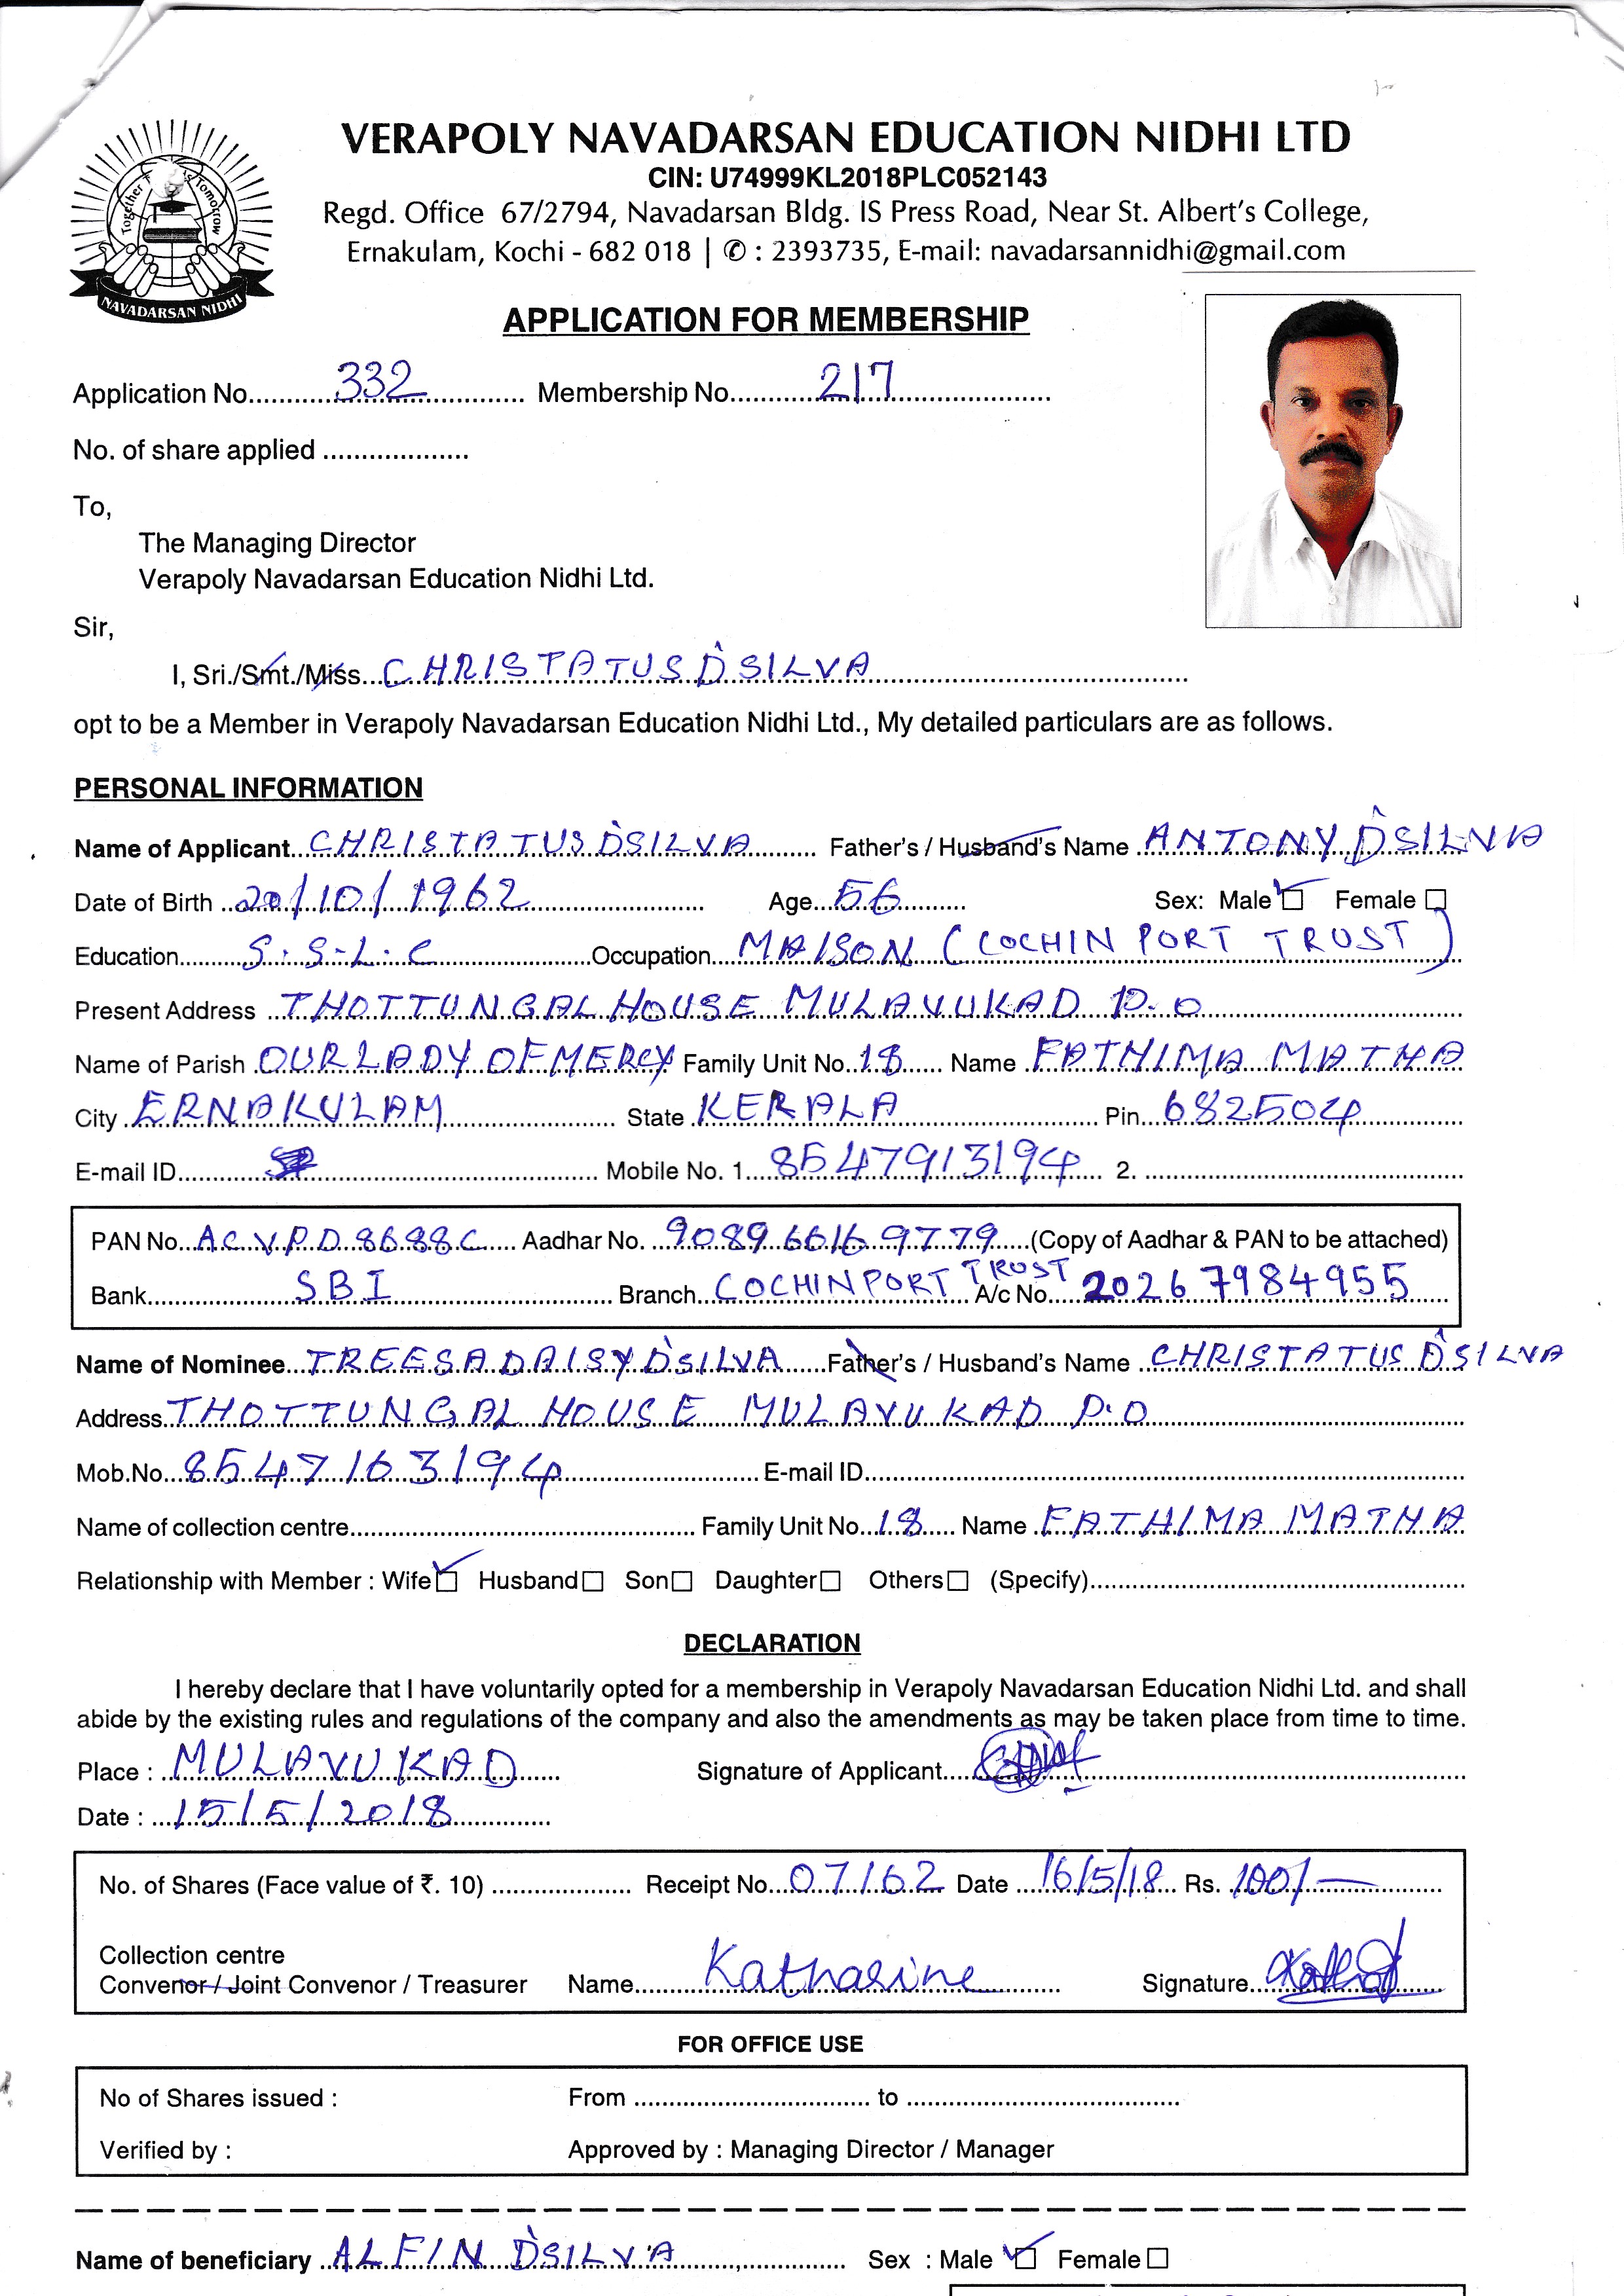 VERAPOLY NAVADARSAN EDUCATION NIDHI LTD
CIN: U74999KL2018PLC052143
Regd. Office 67/2794, Navadarsan Bldg. IS Press Road, Near St. Albert's College,
Ernakulam, Kochi - 682 018 | ✆ : 2393735, E-mail: navadarsannidhi@gmail.com
Together Towards Tomorrow
NAVADARSAN NIDHI
APPLICATION FOR MEMBERSHIP
Application No. 332 Membership No. 217
No. of share applied
To,
The Managing Director
Verapoly Navadarsan Education Nidhi Ltd.
Sir,
I, Sri./Smt./Miss. CHRISTATUS D'SILVA
opt to be a Member in Verapoly Navadarsan Education Nidhi Ltd., My detailed particulars are as follows.
PERSONAL INFORMATION
Name of Applicant CHRISTATUS D'SILVA Father's / Husband's Name ANTONY D'SILVA
Date of Birth 20/10/1962 Age 56 Sex: Male Female
Education S.S.L.C Occupation MAISON (COCHIN PORT TRUST)
Present Address THOTTUNGAL HOUSE MULAVUKAD P.O
Name of Parish OUR LADY OF MERCY Family Unit No. 18 Name FATHIMA MATHA
City ERNAKULAM State KERALA Pin 682504
E-mail ID Mobile No. 1 8547913194 2.
PAN No. ACVPD8688C Aadhar No. 9089 6616 9779 (Copy of Aadhar & PAN to be attached)
Bank SBI Branch COCHIN PORT TRUST A/c No. 20267984955
Name of Nominee TREESA DAISY D'SILVA Father's / Husband's Name CHRISTATUS D'SILVA
Address THOTTUNGAL HOUSE MULAVUKAD P.O
Mob.No. 8547163194 E-mail ID
Name of collection centre Family Unit No. 18 Name FATHIMA MATHA
Relationship with Member : Wife Husband Son Daughter Others (Specify)
DECLARATION
I hereby declare that I have voluntarily opted for a membership in Verapoly Navadarsan Education Nidhi Ltd. and shall
abide by the existing rules and regulations of the company and also the amendments as may be taken place from time to time.
Place : MULAVUKAD Signature of Applicant
Date : 15/5/2018
No. of Shares (Face value of ₹. 10) Receipt No. 07162 Date 16/5/18 Rs. 100/-
Collection centre
Convenor / Joint Convenor / Treasurer Name Katharine Signature
FOR OFFICE USE
No of Shares issued : From to
Verified by : Approved by : Managing Director / Manager
Name of beneficiary ALFIN D'SILVA Sex : Male Female